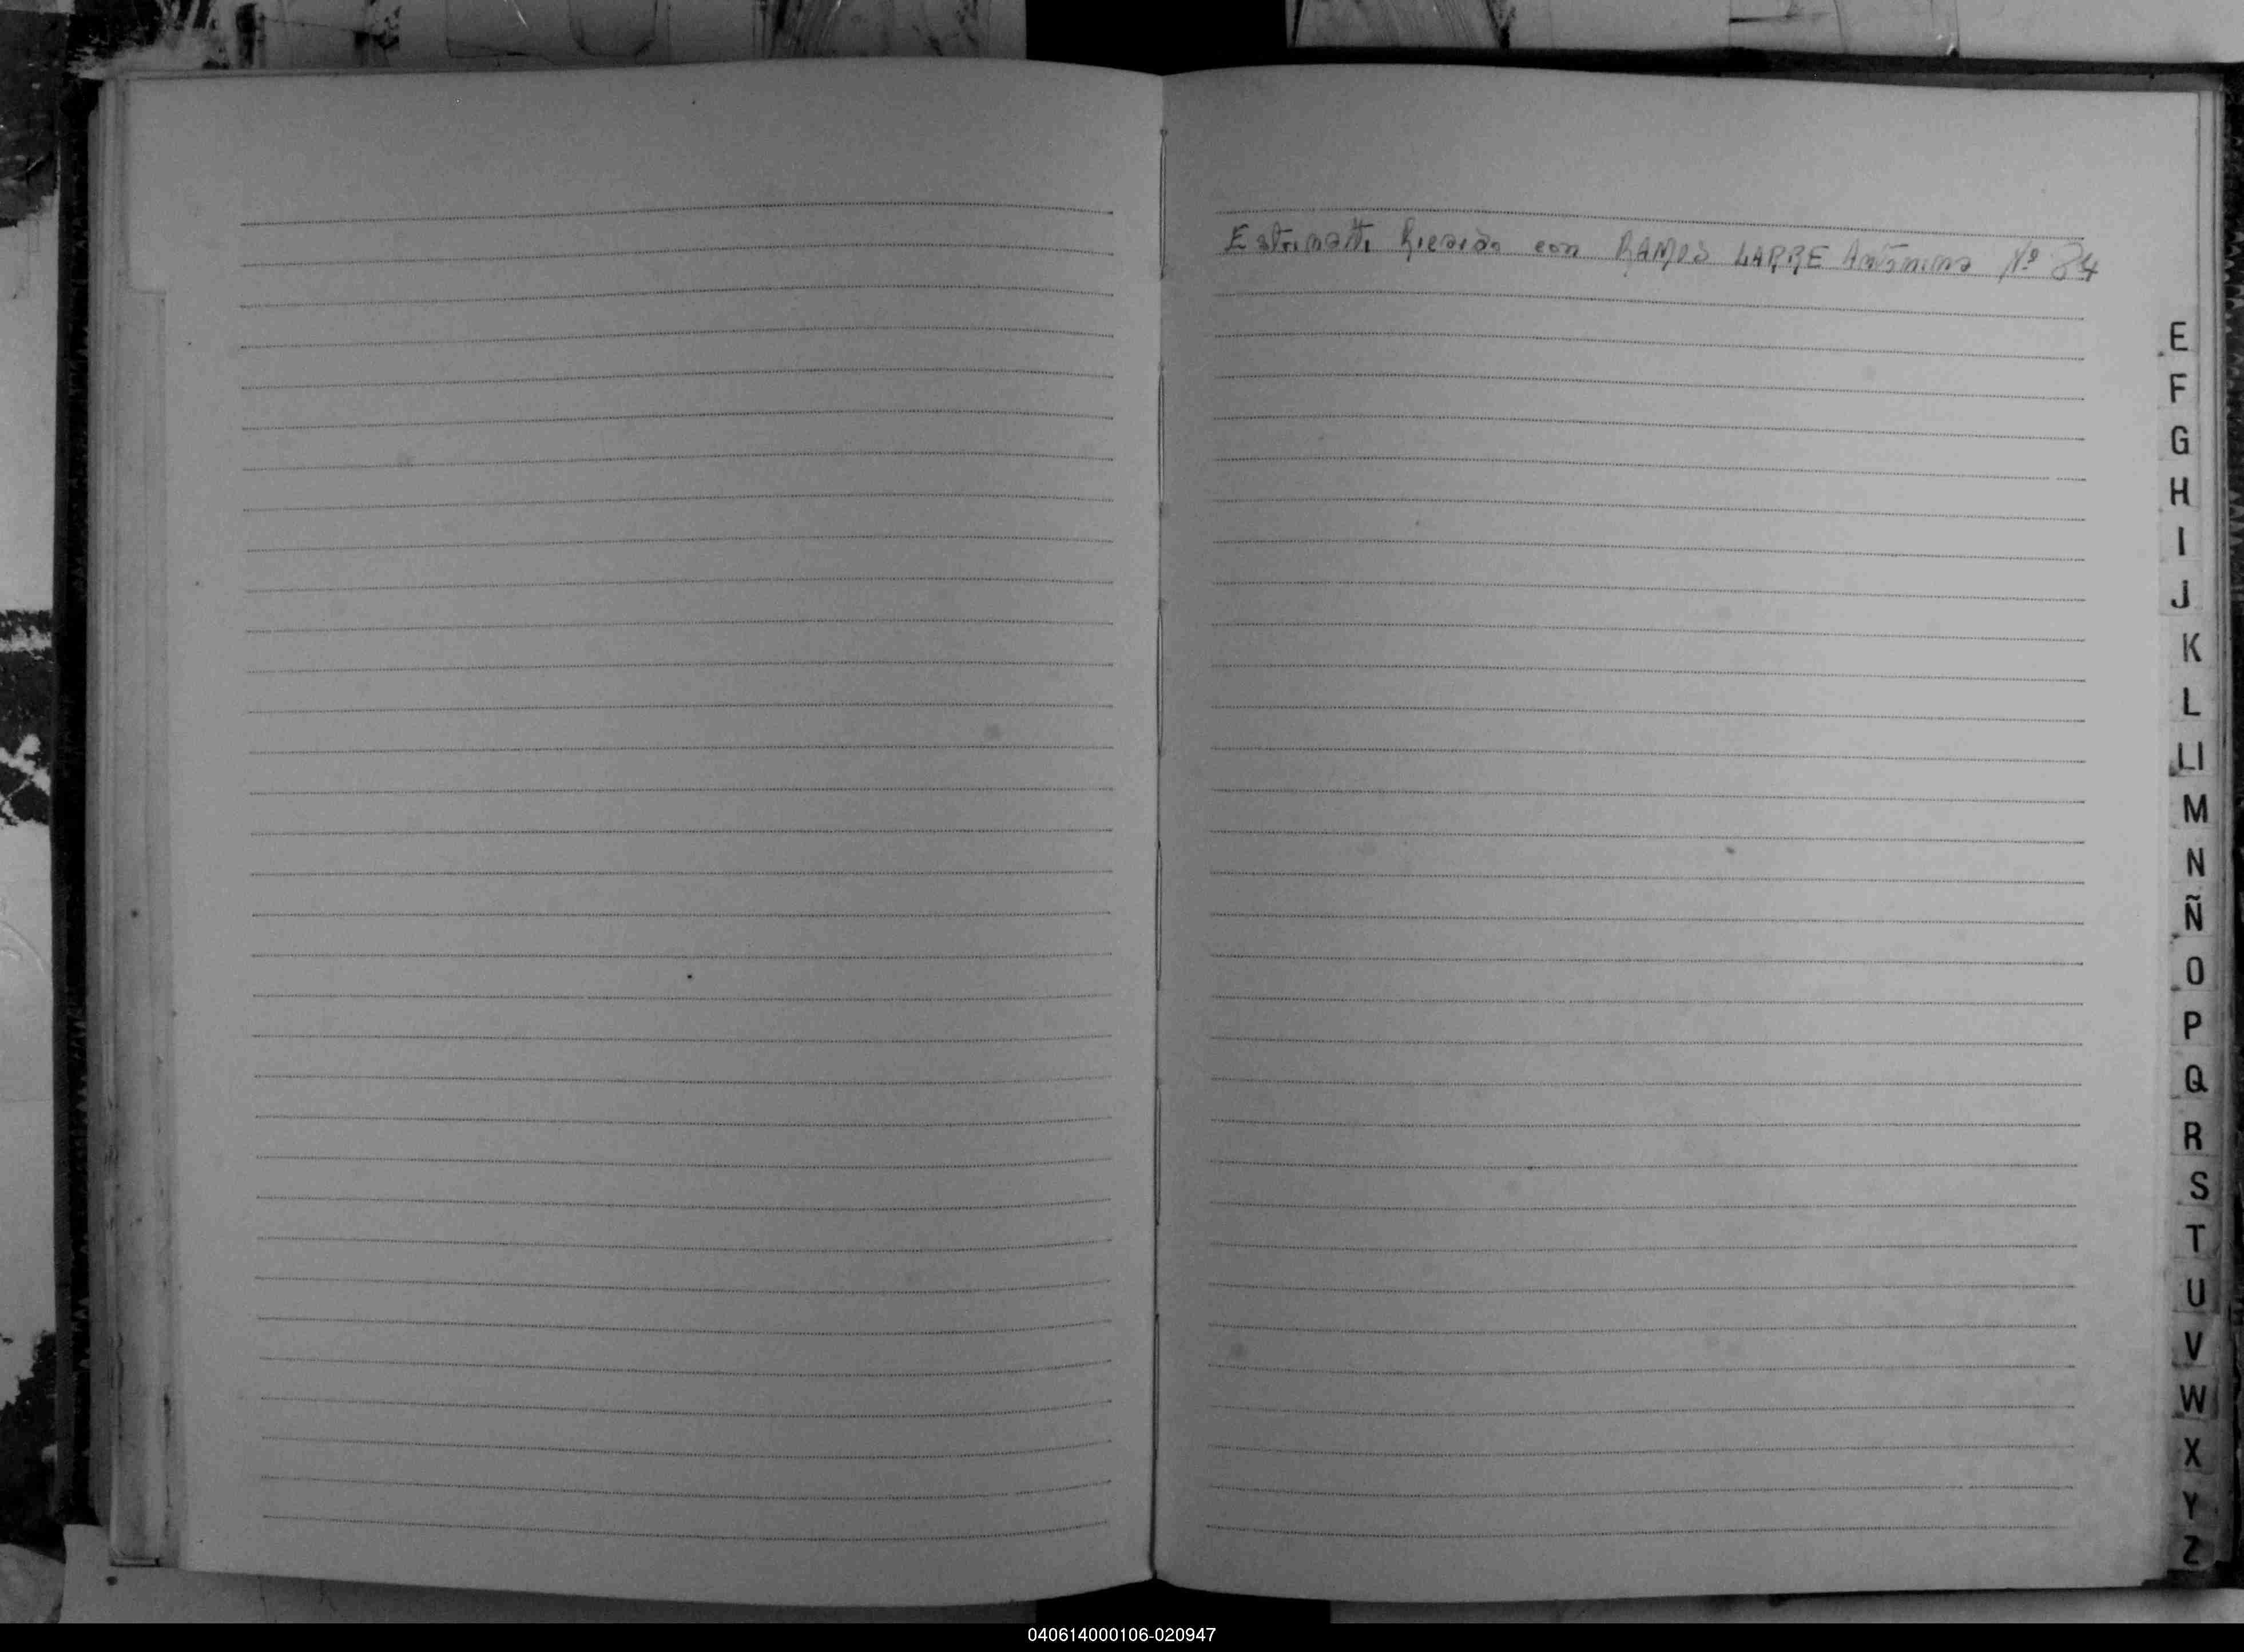 Estrinatti Ricardo con RAMOS LARRE Antonina Nº 84
E
F
G
H
I
J
K
L
Ll
M
N
Ñ
O
P
Q
R
S
T
U
V
W
X
Y
Z
040614000106-020947